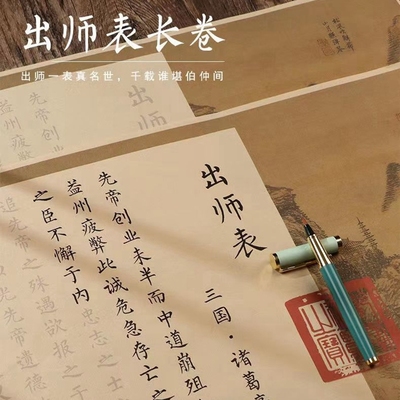 出师表长卷
出师一表真名世，千载谁堪伯仲间
出师表
先帝创业
益州疲弊
出师表
三国·诸葛
先帝创业未半而中道崩殂
益州疲弊此诚危急存亡之
之臣不懈于内忠志之士
追先帝之殊遇欲报之
光先帝遗德